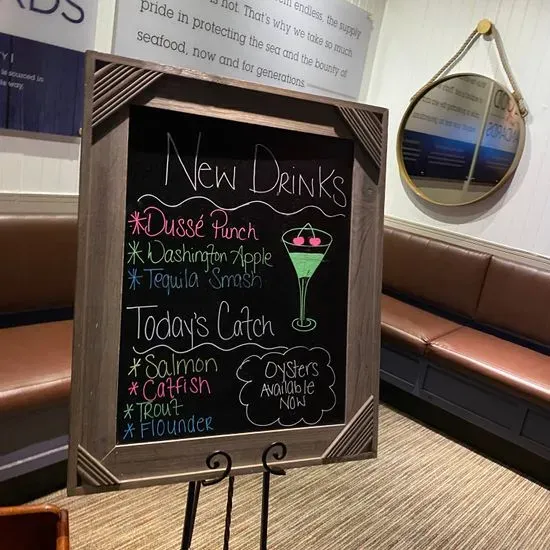 ARDS
sourced in
way.
endless, the supply
is not. That's why we take so much
pride in protecting the sea and the bounty of
seafood, now and for generations.
New Drinks
*Dussé Punch
*Washington Apple
*Tequila Smash
Today's Catch
*Salmon
*Catfish
*Trout
*Flounder
Oysters
Available
Now